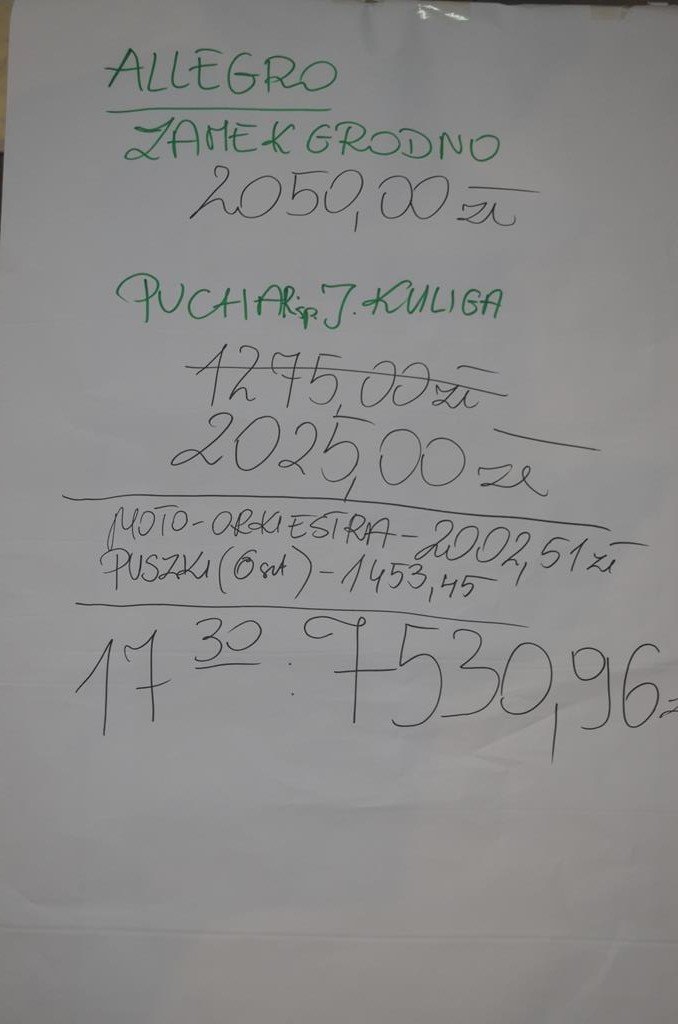 ALLEGRO
ZAMEK GRODNO
2050,00 zł
PUCHAR śp. J. KULIGA
1275,00 zł
2025,00 zł
MOTO-ORKIESTRA - 2002,51 zł
PUSZKI (6 szt) - 1453,45
17 30 : 7530,96 z